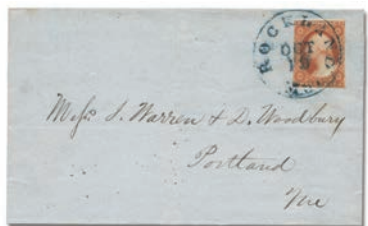 ROCKLAND
OCT
19
Messrs S. Warren & D. Woodbury
Portland
Me